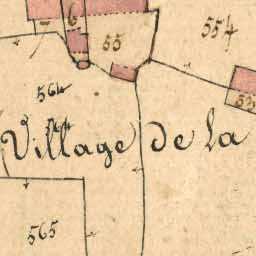 6
7
55
554
564
564
Village de la
565